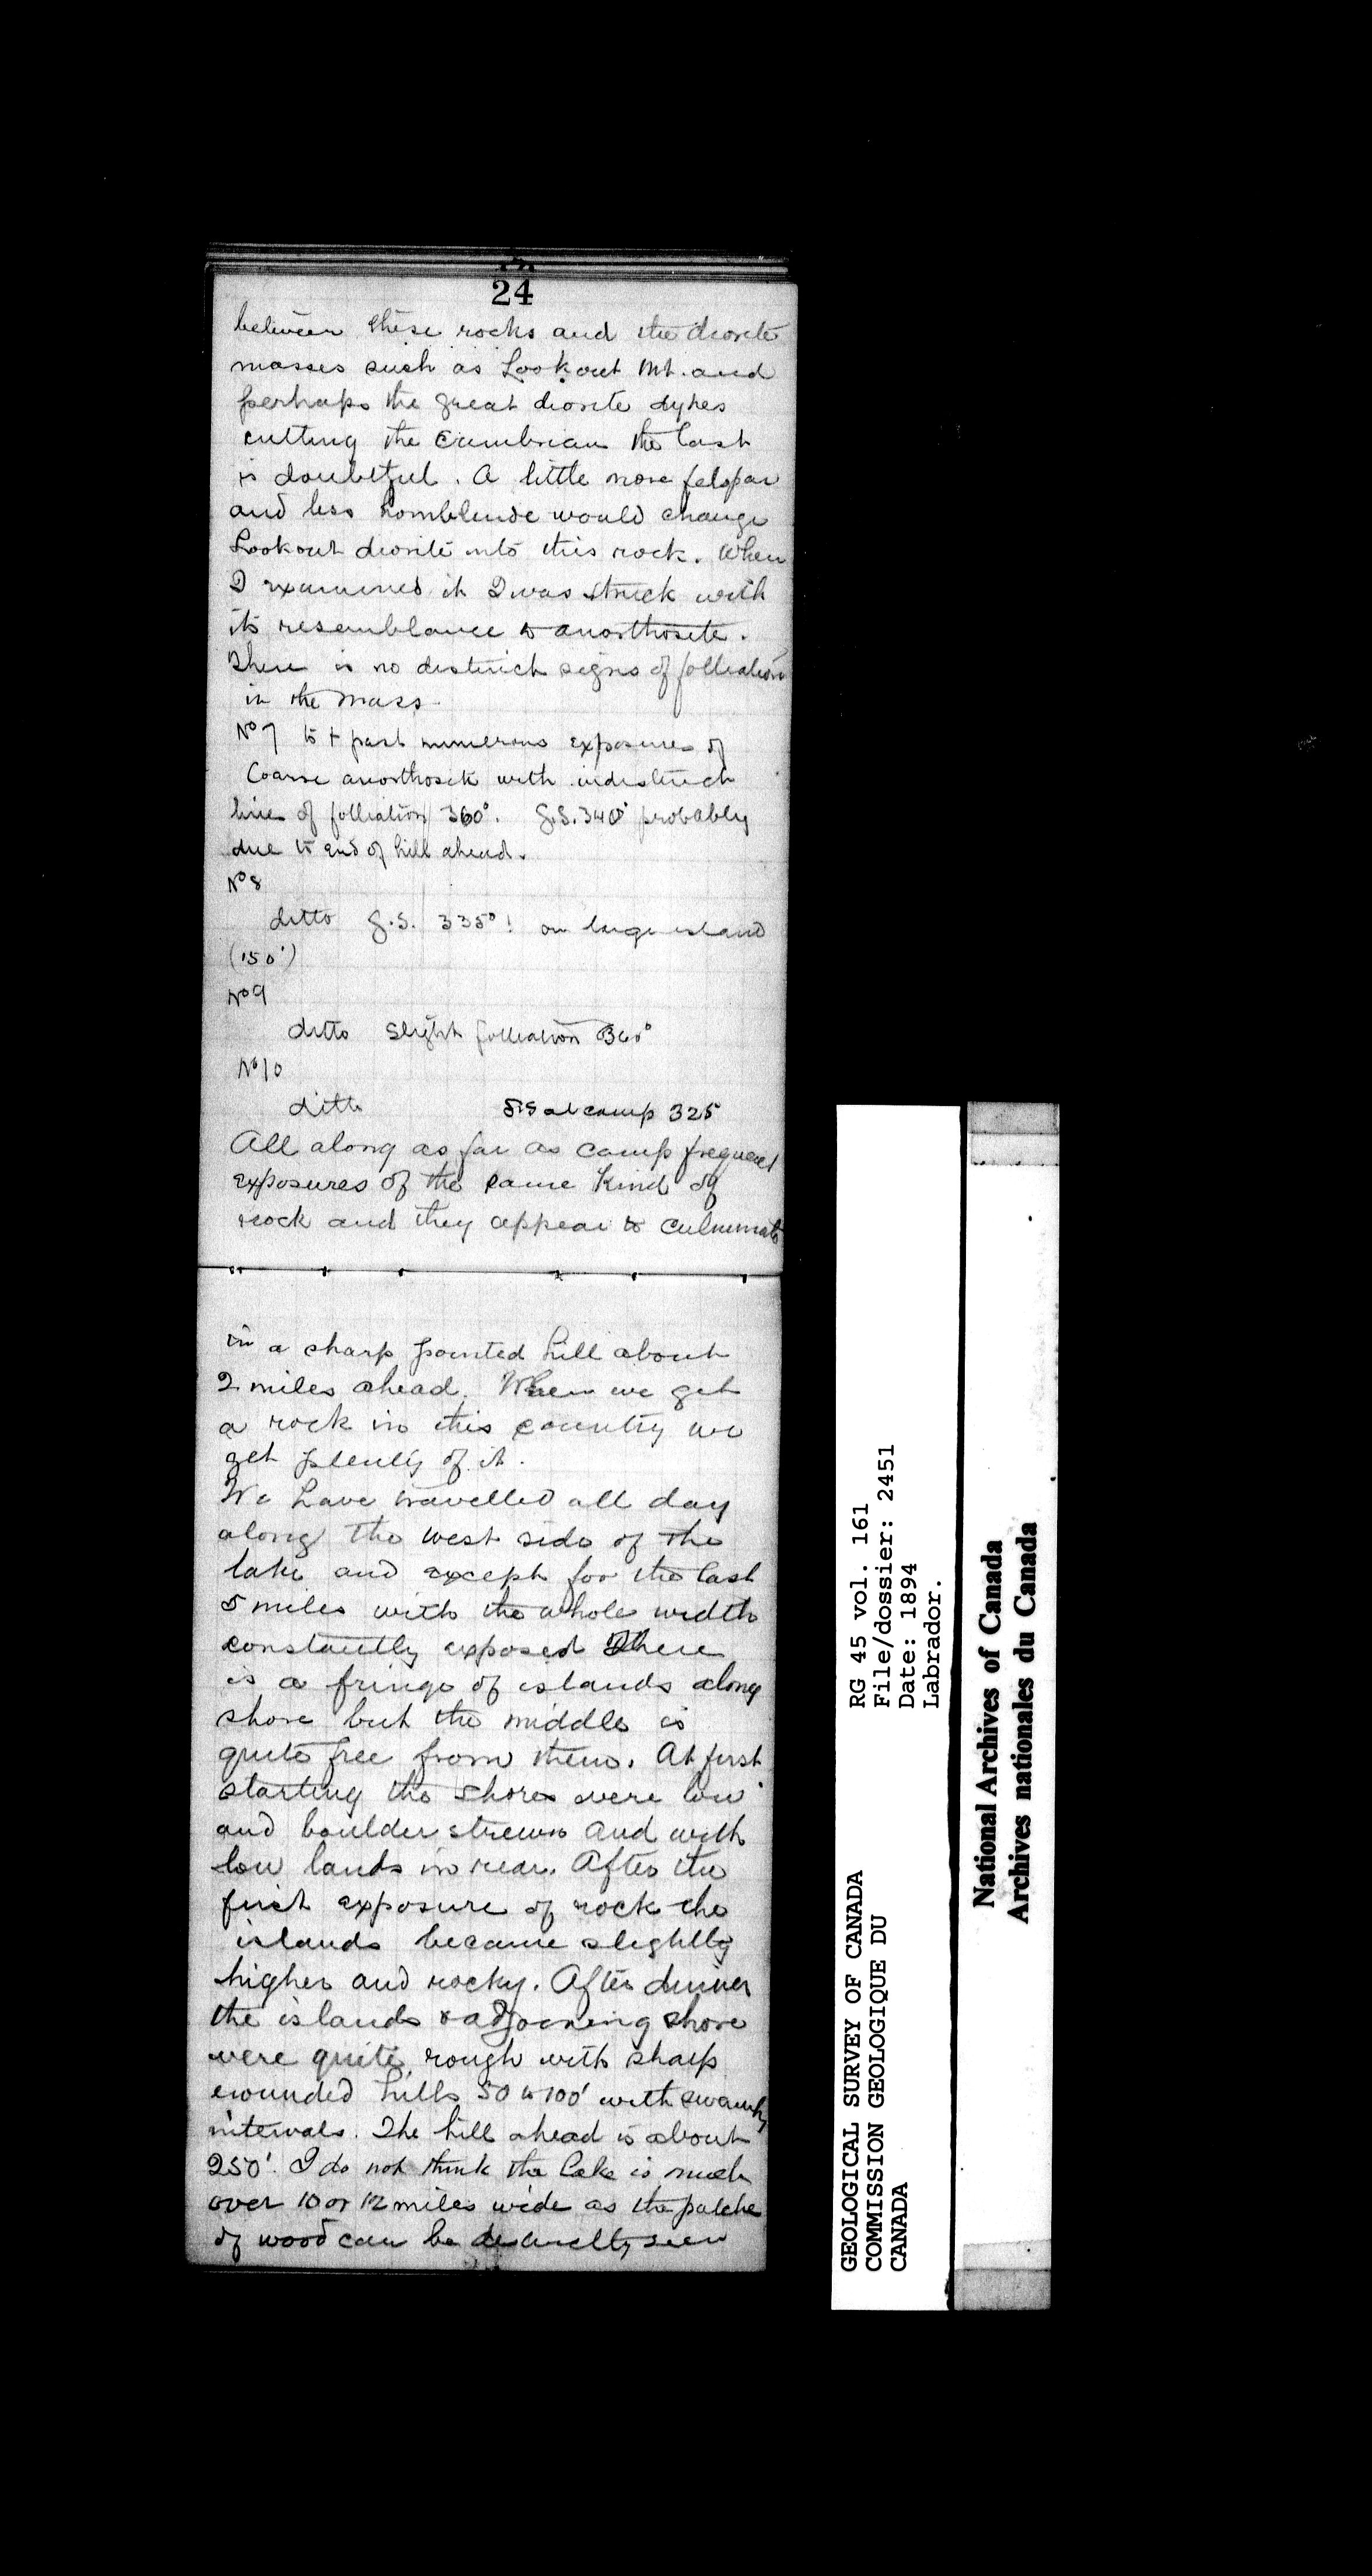 24
between these rocks and the diorite
masses such as Lookout Mt. and
perhaps the great diorite dykes
cutting the Cambrian the last
is doubtful. A little more felspar
and less hornblende would change
Lookout diorite into this rock. When
I examined it I was struck with
its resemblance to anorthosite.
There is no distinct signs of folliation
in the mass
No 7 to + past numerous exposures of
Coarse anorthosite with indistinct
line of folliation 360°. g.S. 340° probably
due to end of hill ahead.
No 8
ditto g.S. 335°! on large island
(150')
No 9
ditto slight folliation 360°
No 10
ditto g.S at camp 325
All along as far as camp frequent
exposures of the same kind of
rock and they appear to culminate
in a sharp pointed hill about
2 miles ahead. When we get
a rock in this country we
get plenty of it.
We have travelled all day
along the west side of the
lake and except for the last
5 miles with the whole width
constantly exposed There
is a fringe of islands along
shore but the middle is
quite free from them. At first
starting the shores were low
and boulder strewn and with
low lands in rear. After the
first exposure of rock the
islands became slightly
higher and rocky. After dinner
the islands & adjoining shore
were quite rough with sharp
rounded hills 50 to 100' with swampy
intervals. The hill ahead is about
250'. I do not think the lake is much
over 10 or 12 miles wide as the patche
of wood can be distinctly seen
GEOLOGICAL SURVEY OF CANADA
COMMISSION GEOLOGIQUE DU
CANADA
RG 45 vol. 161
File/dossier: 2451
Date: 1894
Labrador.
National Archives of Canada
Archives nationales du Canada